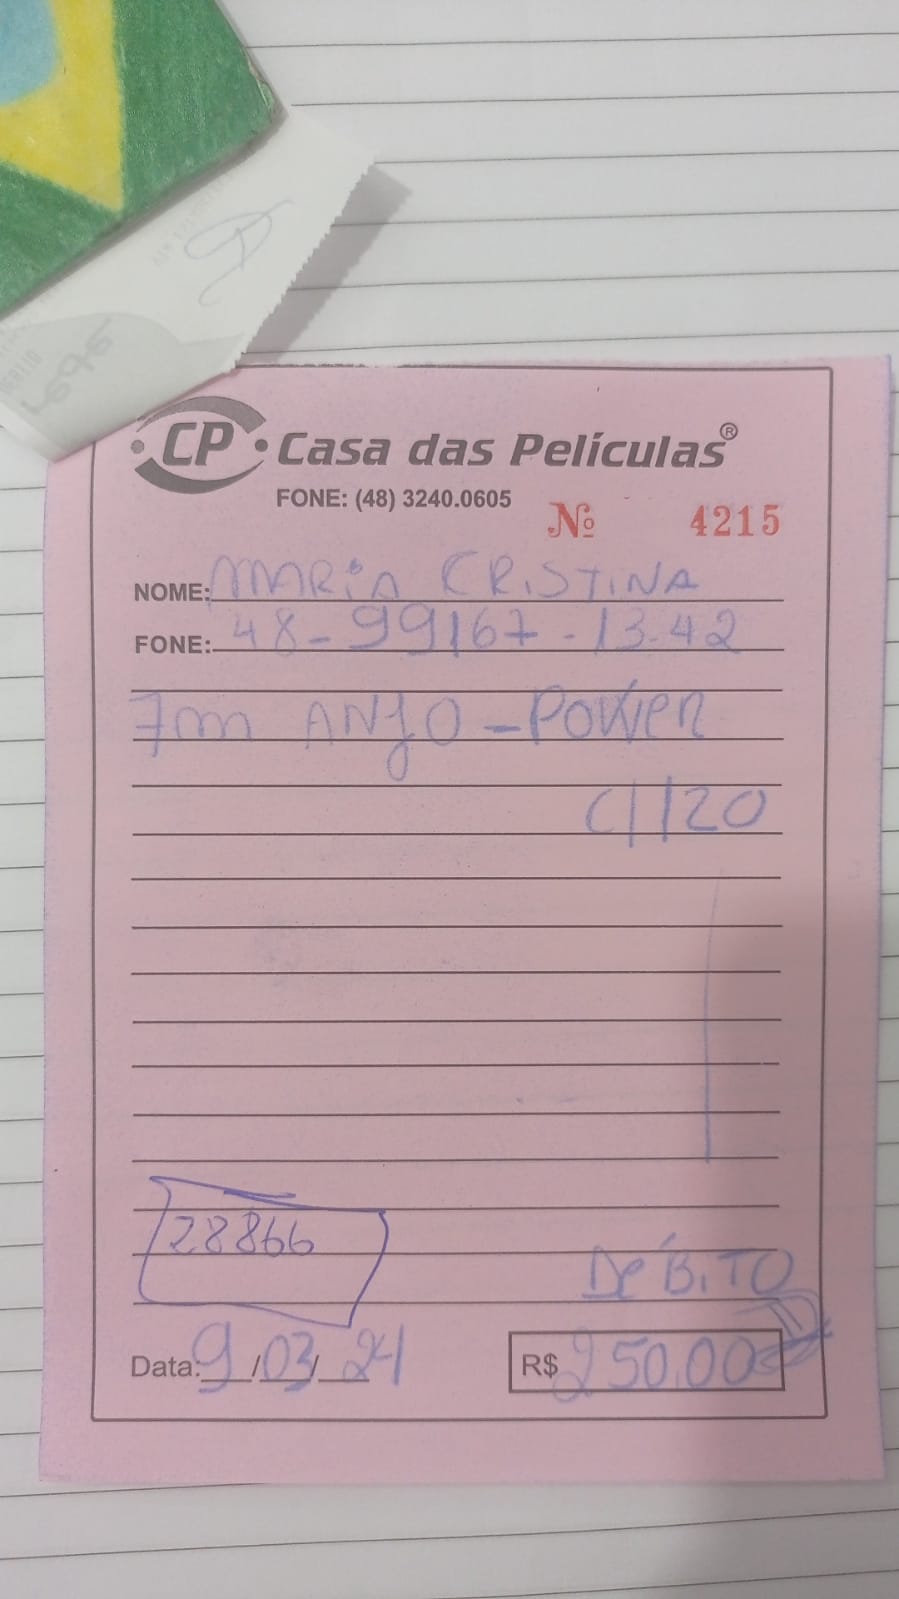 rede
CP Casa das Películas®
FONE: (48) 3240.0605
Nº 4215
NOME: MARIA CRISTINA
FONE: 48-99167-13-42
7m ANJO - POWER
C/120
28866
DÉBITO
Data: 9/03/24 R$ 250,00